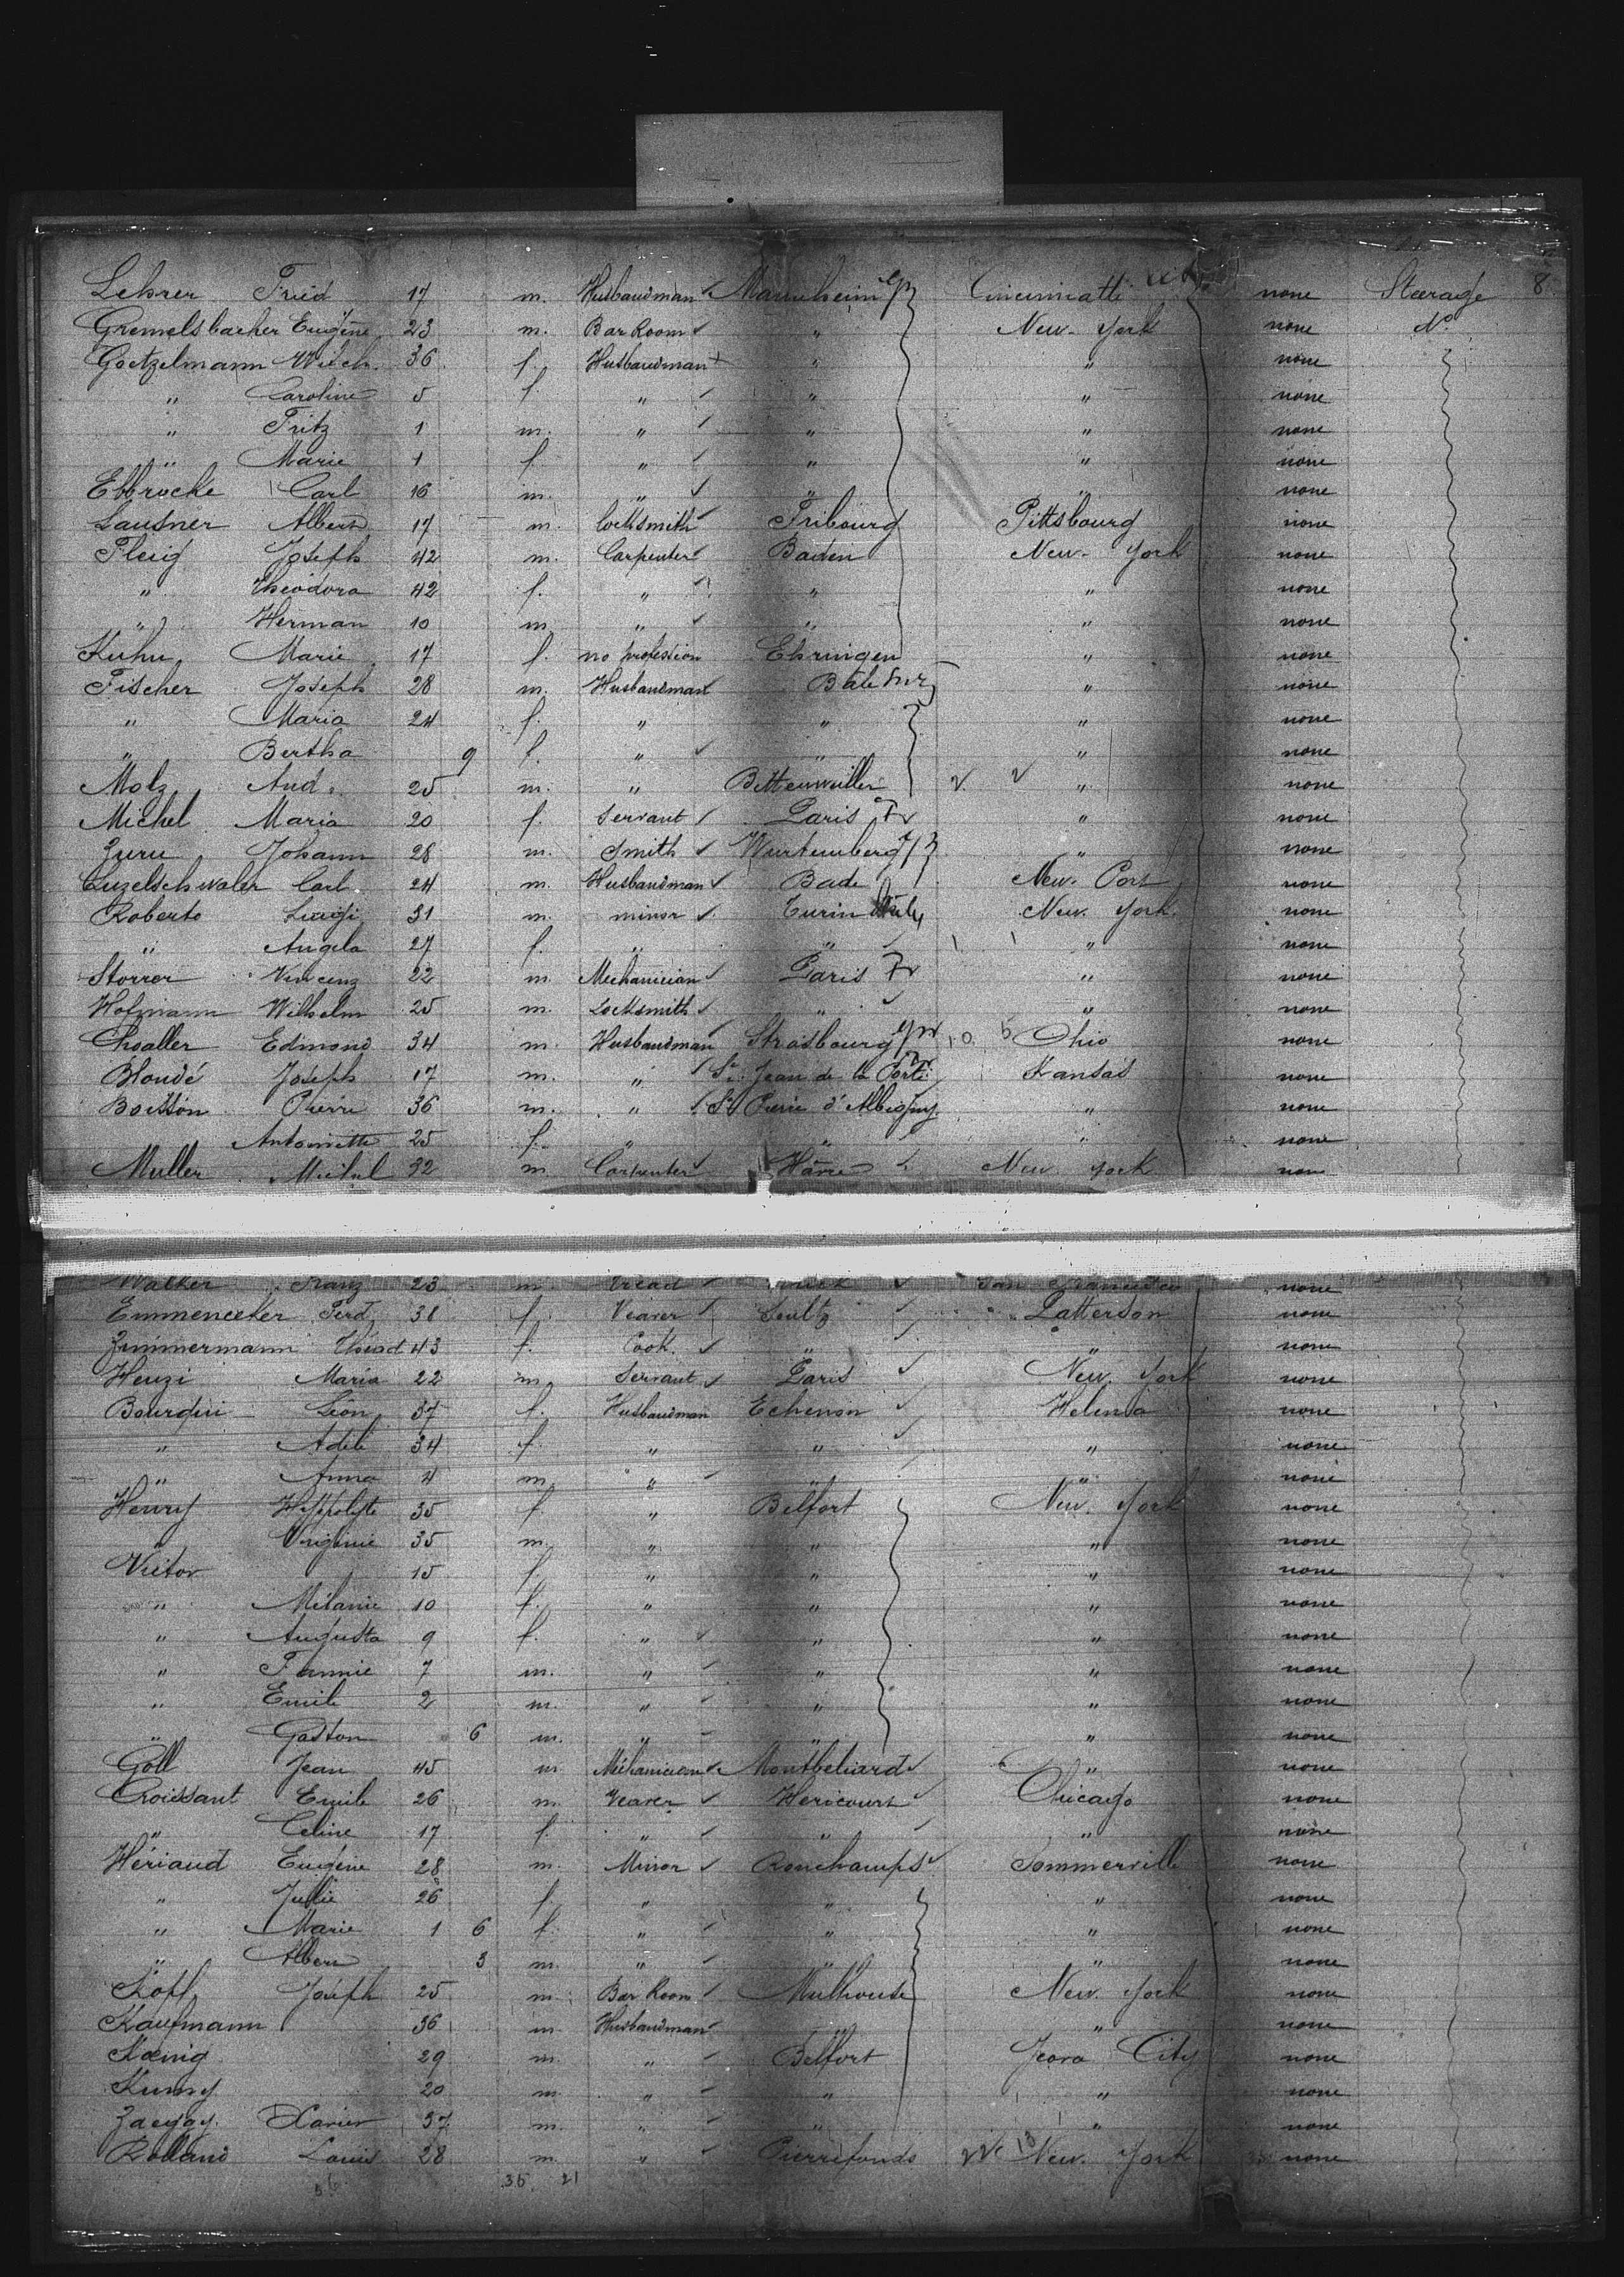 Lehrer Fried 17 m. Husbandman Mannheim Cincinnatti none Steerage 8
Gremelsbacher Eugène 23 m. Bar Room " New-York none
Goetzelmann 36 f. Husbandman " " none
" Caroline 5 f. " " " none
" Fritz 1 m. " " " none
" Marie 1 f. " " " none
Ebbrucke Carl 16 m. " " " none
Lausner Albert 17 m. locksmith Fribourg Pittsbourg none
Fleig Joseph 42 m. Carpenter Baden New-York none
" Theodora 42 f. " " " none
" Herman 10 m. " " " none
Kuhn Marie 17 f. no profession Ehringen " none
Fischer Joseph 28 m. Husbandman Bale " none
" Maria 24 f. " " " none
" Bertha 9 f. " " " none
Motz And. 25 m. " Bittenwiller " none
Michel Maria 20 f. Servant Paris Fr " none
Zuru Johann 28 m. Smith Wurtemberg " none
Luzelschwaler Carl 24 m. Husbandman Bade New-Port none
Roberto Luigi 31 m. minor Turin Italy New York none
" Angela 27 f. " " " none
Storrer Vincenz 22 m. Mechanician Paris Fr " none
Hofmann Wilhelm 25 m. Locksmith " " none
Choaller Edmond 34 m. Husbandman Strasbourg 10 5 Ohio none
Blondé Joseph 17 m. " St. Jean de la Porte Kansas none
Boisson Pierre 36 m. " St. Pierre d'Albigny " none
Antoinette 25 f. " " " none
Muller Michel 32 m. Carpenter Havre New York none
Walker Franz 23 m. San Francisco none
Emmenecker Ferd. 38 f. Veaver Soultz Patterson none
Zimmermann Théod 43 f. Cook " " none
Heuzi Maria 22 m. Servant Paris New York none
Bourquin Léon 37 f. Husbandman Echenon Helena none
" Adèle 34 f. " " " none
" Anna 4 m. " " " none
Henry Hyppolyte 35 f. " Belfort New York none
" Virginie 35 m. " " " none
Victor 15 f. " " " none
" Mélanie 10 f. " " " none
" Augusta 9 f. " " " none
" Fannie 7 m. " " " none
" Emile 2 m. " " " none
" Gaston 6 m. " " " none
Goll Jean 45 m. Méchanician Montbeliard " none
Croissant Emile 26 m. Veaver Hericourt Chicago none
" Celine 17 f. " " " none
Hériaud Eugène 28 m. Minor Ronchamps Sommerville none
" Julie 26 f. " " " none
" Marie 1 6 f. " " " none
" Albert 3 m. " " " none
Kopf Joseph 25 m. Bar Room Mulhouse New York none
Kaufmann 36 m. Husbandman " " none
Koenig 29 m. " Belfort Jeora City none
Kumy 20 m. " " " none
Zaegay Xavier 37 m. " " " none
Rolland Louis 28 m. " Pierrefonds 13 New York none
36 21